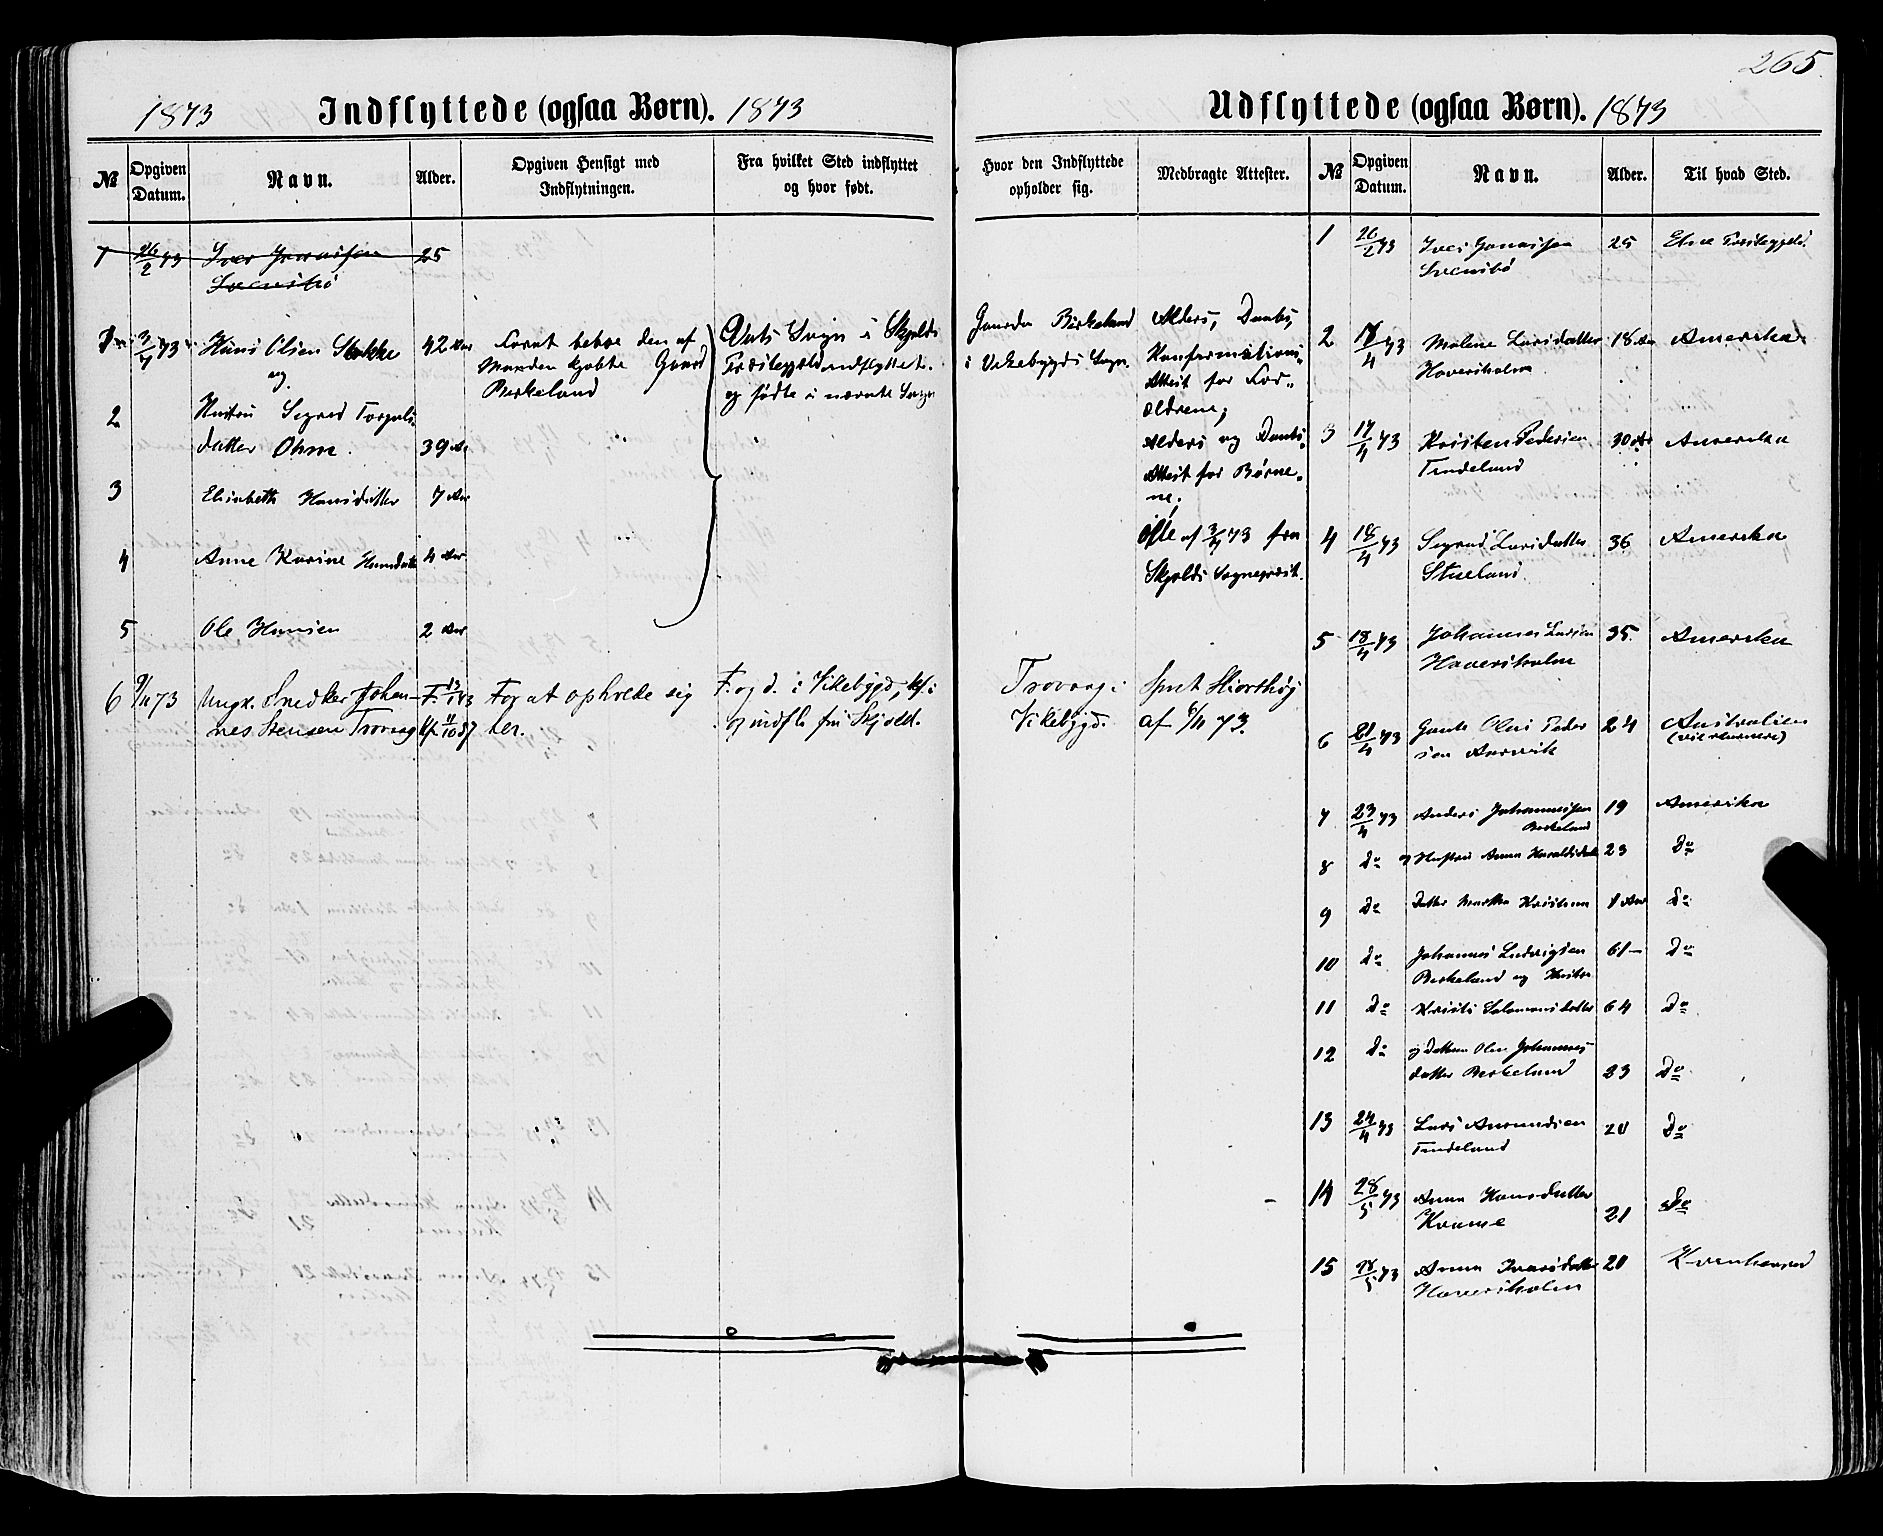 265.
1873 Indflyttede (ogsaa Børn). 1873
№
Opgiven Datum.
Navn.
Alder.
Opgiven Hensigt med Indflytningen.
Fra hvilket Sted indflyttet og hvor født.
Hvor den Indflyttede opholder sig.
Medbragte Attester.
1 26/2 73 25
Svensbø
3/7 73 Hans Olsen Stakke 42 Aar
og
2 Hustru Segred
datter Ohm. 39 Ar
3 Elisabeth Hansdatter 7 Aar
4 Anne Karine Hansdatt 4 Aar
5 Ole Hansen 2 Aar
Forat beboe den af
Manden kjøbte Gaard
Birkeland
Vats Sogn i Skjolds
Præstegjeld indflyttet
og fødte i nævnte Sogn
Gaarden Birkeland
i Vikebygds Sogn.
Alders, Daabs,
Konfirmations
Attest for For-
ældrene;
Alders og Daabs
Attest for Børne-
ne;
Alle af 3/7 73 fra
Skjolds Sognepræst.
6 9/11 73 Ungk. Snedker Johan- F. 13/1 43
nes Stensen Trovaag Kf. 11/10 57
For at opholde sig
her.
F. og d. i Vikebygd, kf. i
og indfl. fra Skjold.
Trovaag i
Vikebygd.
Sprt Hiorthøj
af 6/11 73.
Udflyttede (ogsaa Børn). 1873
№
Opgiven Datum.
Navn.
Alder.
Til hvad Sted.
1 26/2 73 25 Etne Præstegjeld
Svensbø
2 /4 73 Malene Larsdatter 18 Aar Amerika
Haversholm
3 17/4 73 Kristen Pedersen 30 Aar Amerika
Tindeland
4 18/4 73 Segred Larsdatter 36 Amerika
Stueland
5 18/4 73 Johannes Larsen 35. Amerika
Haversholm
6 21/4 73 Olai Peder 24 Australien
sen Aarvik (vil returnere)
7 23/4 73 Anders Johannessen 19 Amerika
Birkeland
8 do og Hustru Anna Haraldsdatt 23 do
9 do Datter Martha Kristiana 1 Aar do
10 do Johannes Ludvigsen 61 - do
Birkeland og Hustru
11 do Kristi Salomonsdatter 64 do
12 do og Datteren Olene Johannes
datter Birkeland 23 do
13 24/4 73 Lars Aamundsen 20 do
Tindeland
14 28/5 73 Anna Hansdatter
Kvame 21 do
15 28/5 73 Anna Ivarsdatter 20
Haversholm